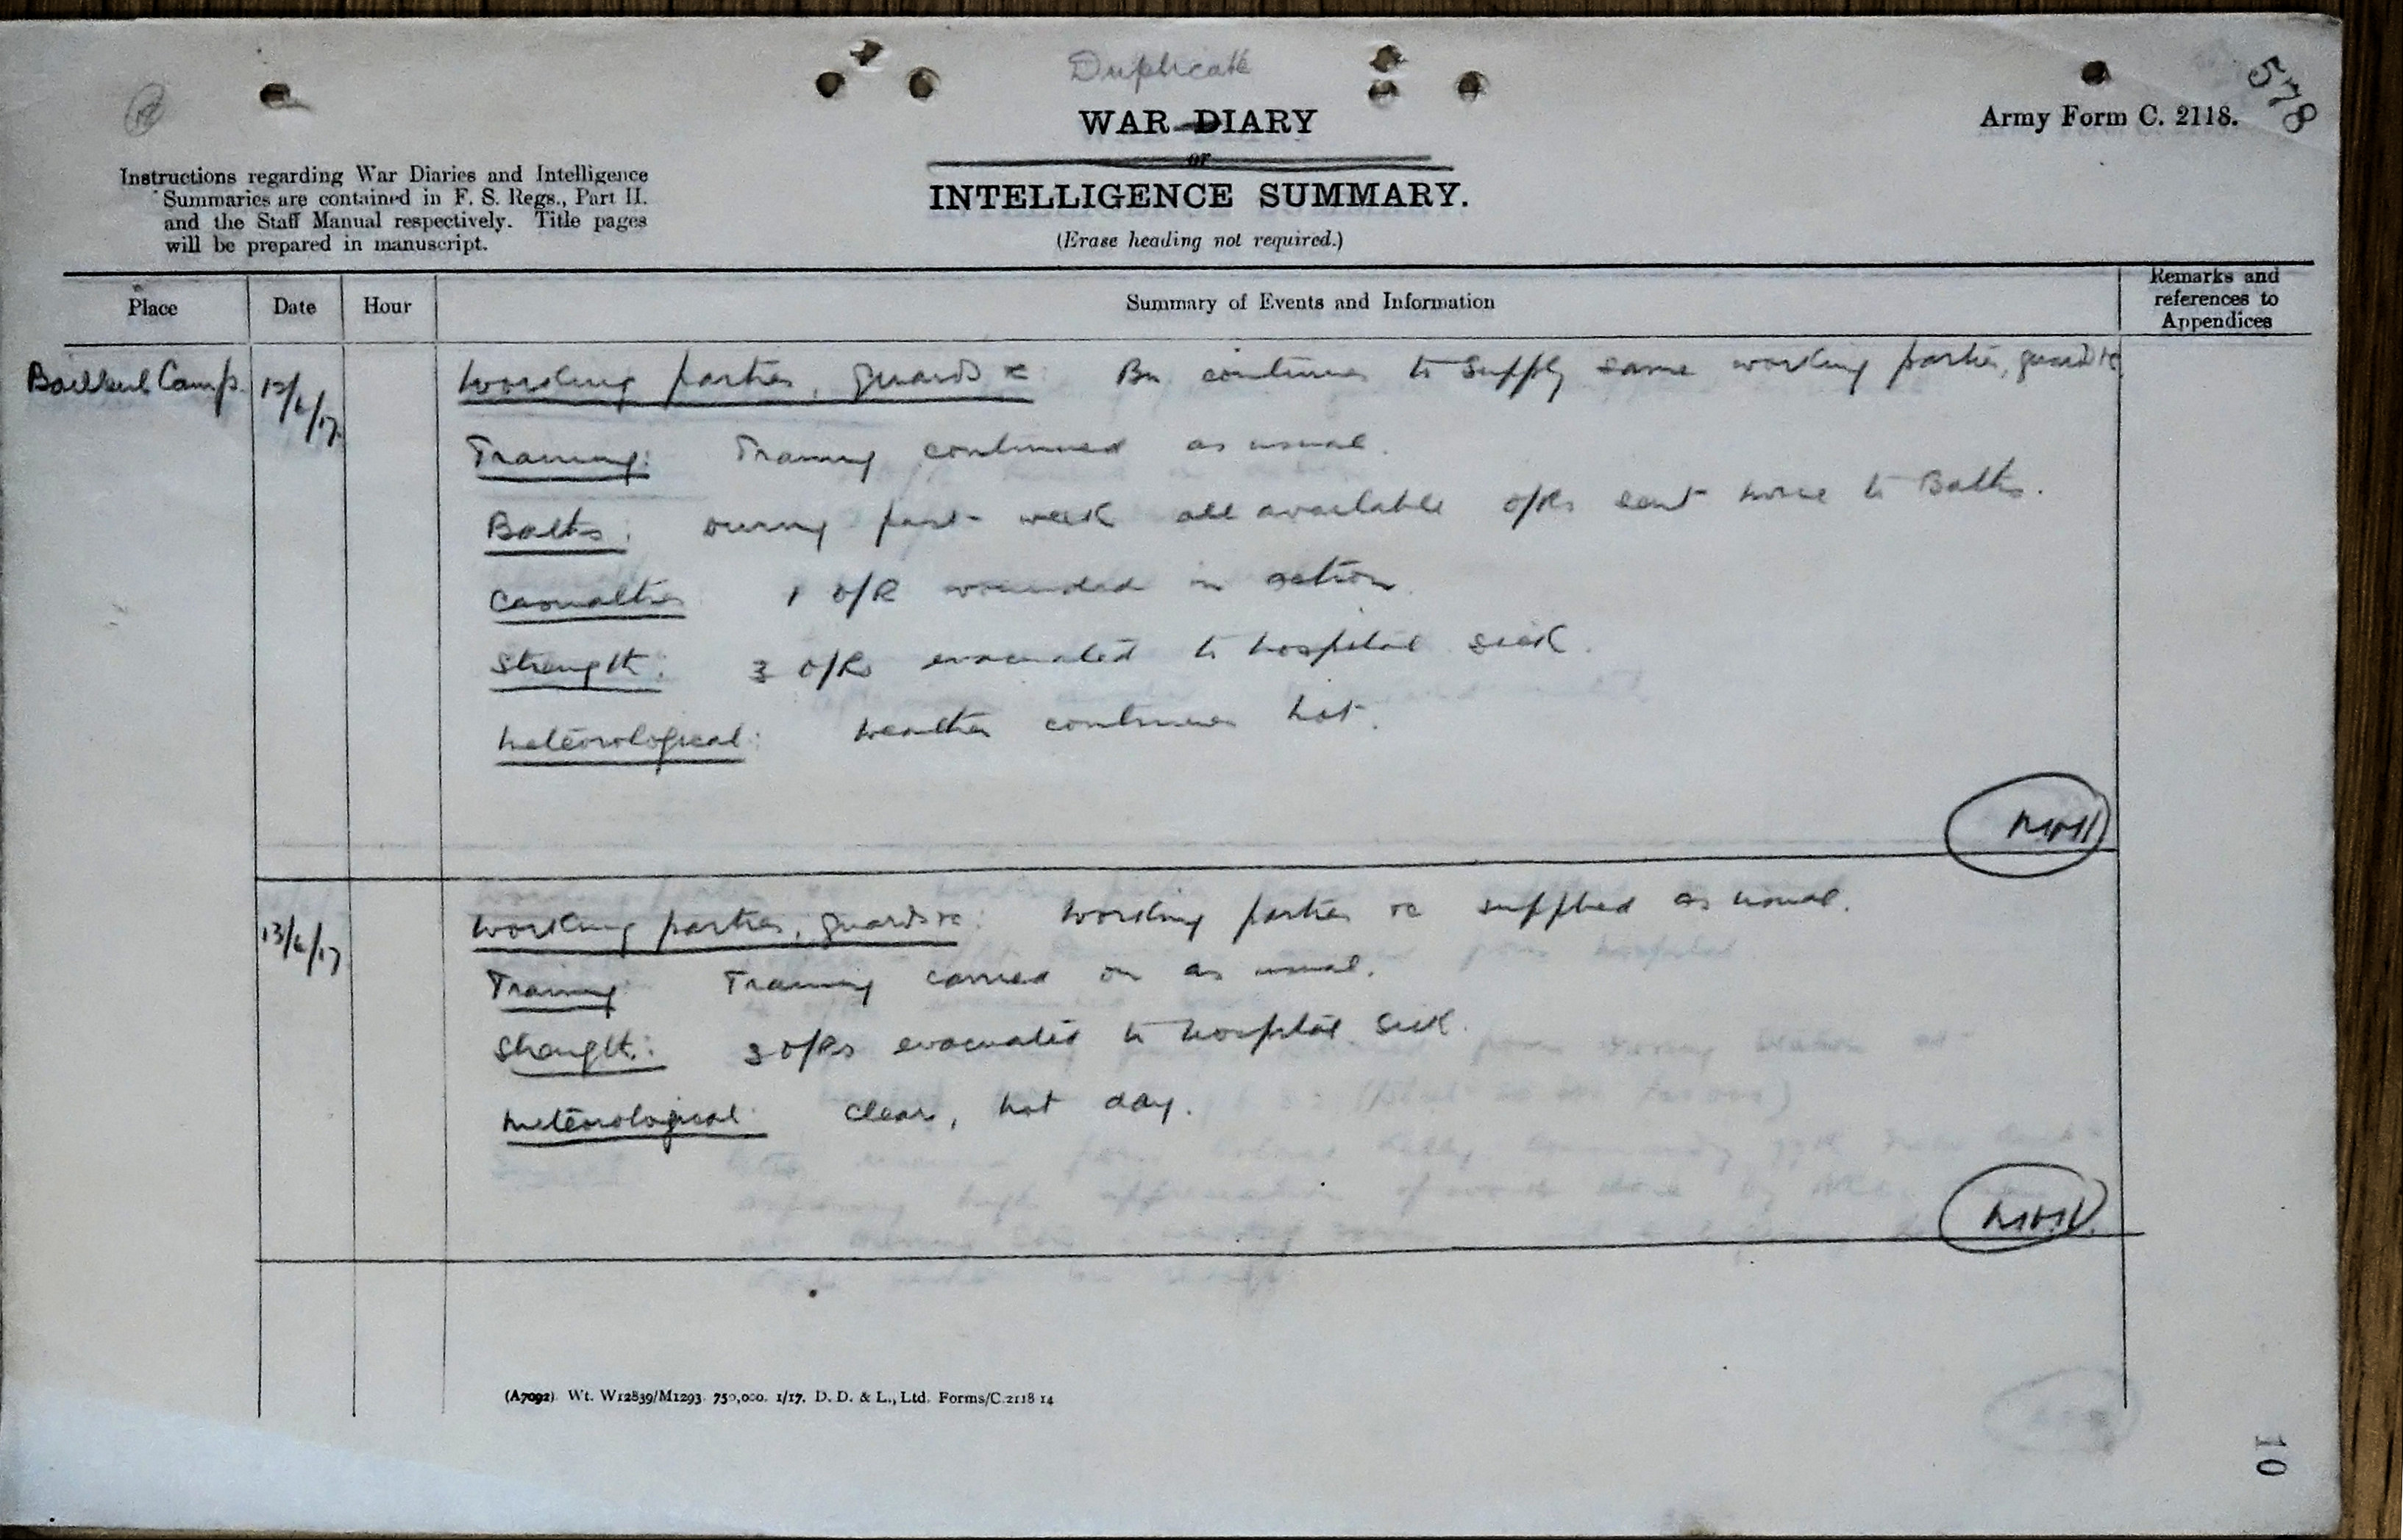 Duplicate
578
WAR DIARY
or
INTELLIGENCE SUMMARY.
(Erase heading not required.)
Army Form C. 2118.
Instructions regarding War Diaries and Intelligence
Summaries are contained in F. S. Regs., Part II.
and the Staff Manual respectively. Title pages
will be prepared in manuscript.
Place Date Hour Summary of Events and Information Remarks and references to Appendices
Bailleul Camp. 12/6/17 Working parties, guards &c: Bn continues to supply same working parties, guards &c
Training: Training continued as usual.
Baths: During past week all available O/Rs sent twice to Baths.
Casualties 1 O/R wounded in action.
Strength: 3 O/Rs evacuated to hospital sick.
Meteorological: Weather continues hot.
13/6/17 Working parties, guards &c: Working parties &c supplied as usual.
Training Training carried on as usual.
Strength: 3 O/Rs evacuated to hospital sick.
Meteorological: Clear, hot day.
(A7092) Wt. W12839/M1293. 750,000. 1/17. D. D. & L., Ltd. Forms/C.2118 14
10